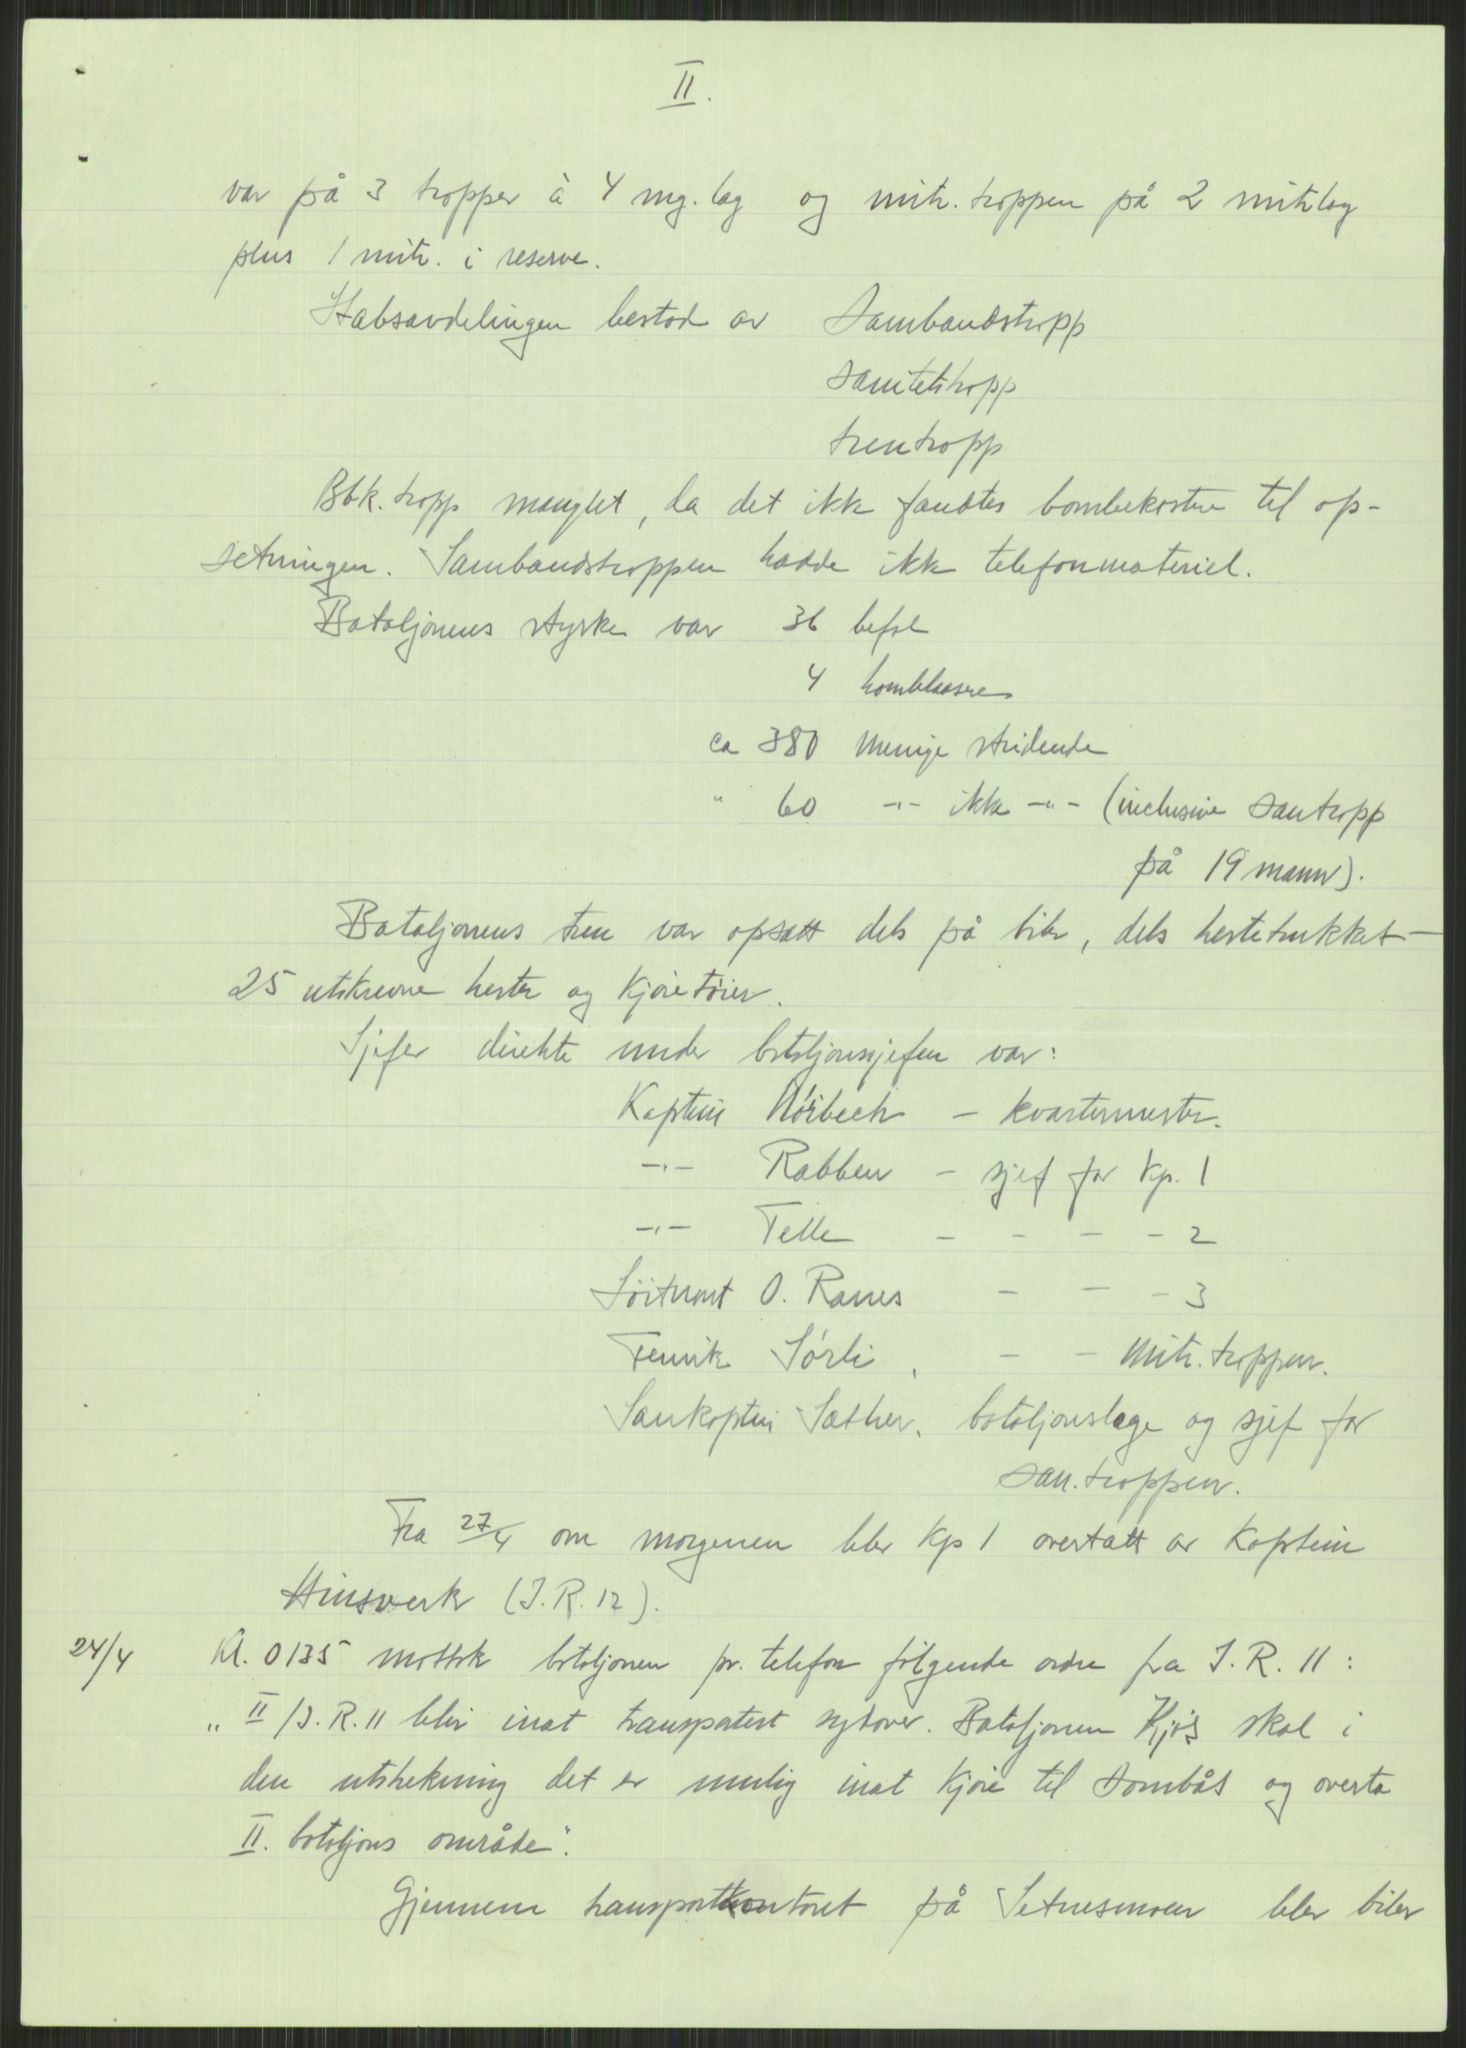 II.
var på 3 tropper à 4 mg. lag og mitr. troppen på 2 mitrlag
plus 1 mitr. i reserve.
Stabsavdelingen bestod av Sambandstropp
Sanitetstropp
trentropp
Bbk. tropp manglet, da det ikke fandtes bombekastere til op-
setningen. Sambandstroppen hadde ikke telefonmateriel.
Bataljonens styrke var 36 befal
4 hornblåsere
ca 380 menige stridende
" 60 -"- ikke -"- (inclusive santropp
på 19 mann).
Bataljonens tren var opsatt dels på biler, dels hestetrukket -
25 utskrevne hester og kjøretøier.
Sjefer direkte under bataljonssjefen var:
Kaptein Nørbech - kvartermester.
-"- Rabben - sjef for Kp. 1
-"- Telle - - - - 2
Løitnant O. Ranes - - - 3
Fenrik Sørli, - - Mitr. troppen.
Sankaptein Sæther, bataljonslege og sjef for
San. troppen.
Fra 27/4 om morgenen blev Kp 1 overtatt av Kaptein
Hinsverk (I.R. 12).
24/4 Kl. 0135 mottok bataljonen pr. telefon følgende ordre fra I.R. 11:
„ II/I.R. 11 blir inat transportert sydover. Bataljonen Kjøs skal i
den utstrekning det er mulig inat kjøre til Dombås og overta
II. bataljons område".
Gjennem transportkontoret på Setnesmoen blev biler